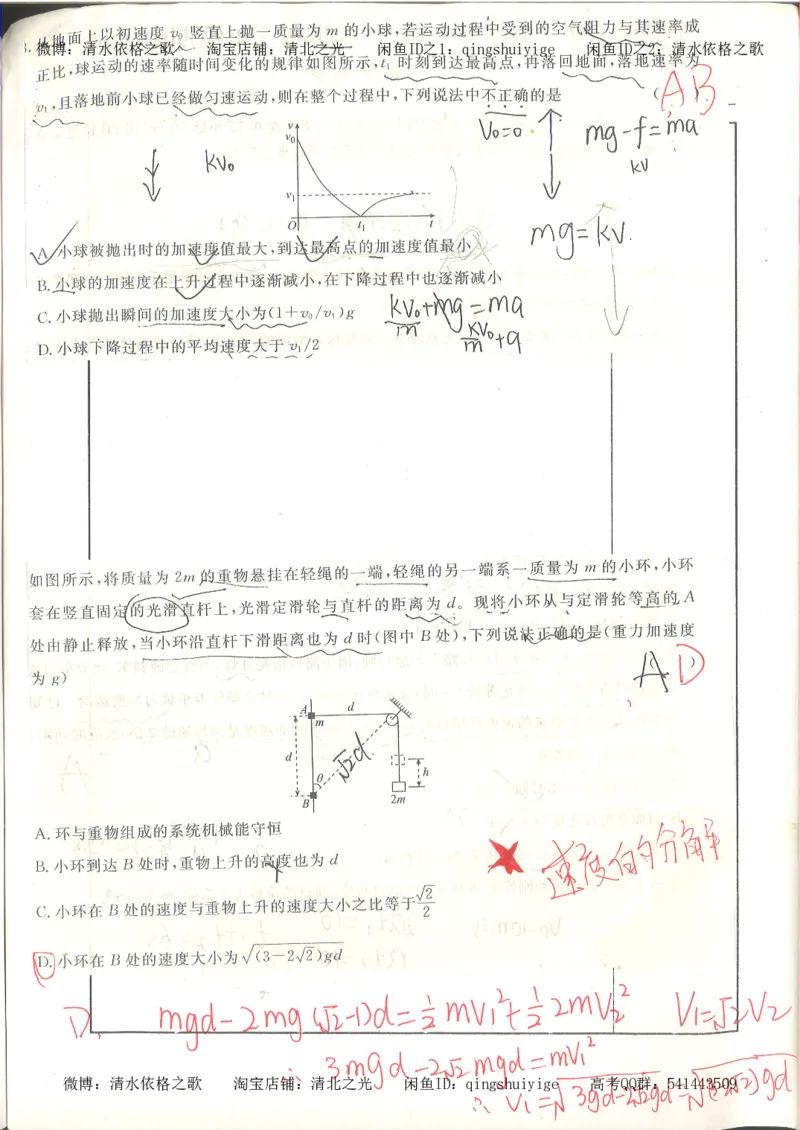 从地面上以初速度 v₀ 竖直上抛一质量为 m 的小球,若运动过程中受到的空气阻力与其速率成
微博：清水依格之歌 淘宝店铺：清北之光 闲鱼ID之1：qingshuiyige 闲鱼ID之2：清水依格之歌
正比,球运动的速率随时间变化的规律如图所示,t₁ 时刻到达最高点,再落回地面,落地速率为
v₁,且落地前小球已经做匀速运动,则在整个过程中,下列说法中不正确的是 ( AB )
V₀=0
mg-f=ma
kv
kv₀
mg=kv.
v
v₀
v₁
O t₁ t
A. 小球被抛出时的加速度值最大,到达最高点的加速度值最小
B. 小球的加速度在上升过程中逐渐减小,在下降过程中也逐渐减小
C. 小球抛出瞬间的加速度大小为(1+v₀/v₁)g
kv₀+mg=ma
m
kv₀/m+g
D. 小球下降过程中的平均速度大于 v₁/2
如图所示,将质量为 2m 的重物悬挂在轻绳的一端,轻绳的另一端系一质量为 m 的小环,小环
套在竖直固定的光滑直杆上,光滑定滑轮与直杆的距离为 d。现将小环从与定滑轮等高的 A
处由静止释放,当小环沿直杆下滑距离也为 d 时(图中 B 处),下列说法正确的是(重力加速度
为 g) ( AD )
A d
m
d √2d
h
θ
B 2m
A. 环与重物组成的系统机械能守恒
B. 小环到达 B 处时,重物上升的高度也为 d
C. 小环在 B 处的速度与重物上升的速度大小之比等于√2/2
★ 速度的分解
D. 小环在 B 处的速度大小为√(3-2√2)gd
D. mgd-2mg(√2-1)d=½mV₁²+½2mV₂² V₁=√2V₂
∴ 3mgd-2√2mgd=mV₁²
∴ V₁=√3gd-2√2gd=√(3-2√2)gd
微博：清水依格之歌 淘宝店铺：清北之光 闲鱼ID：qingshuiyige 高考QQ群：541443509